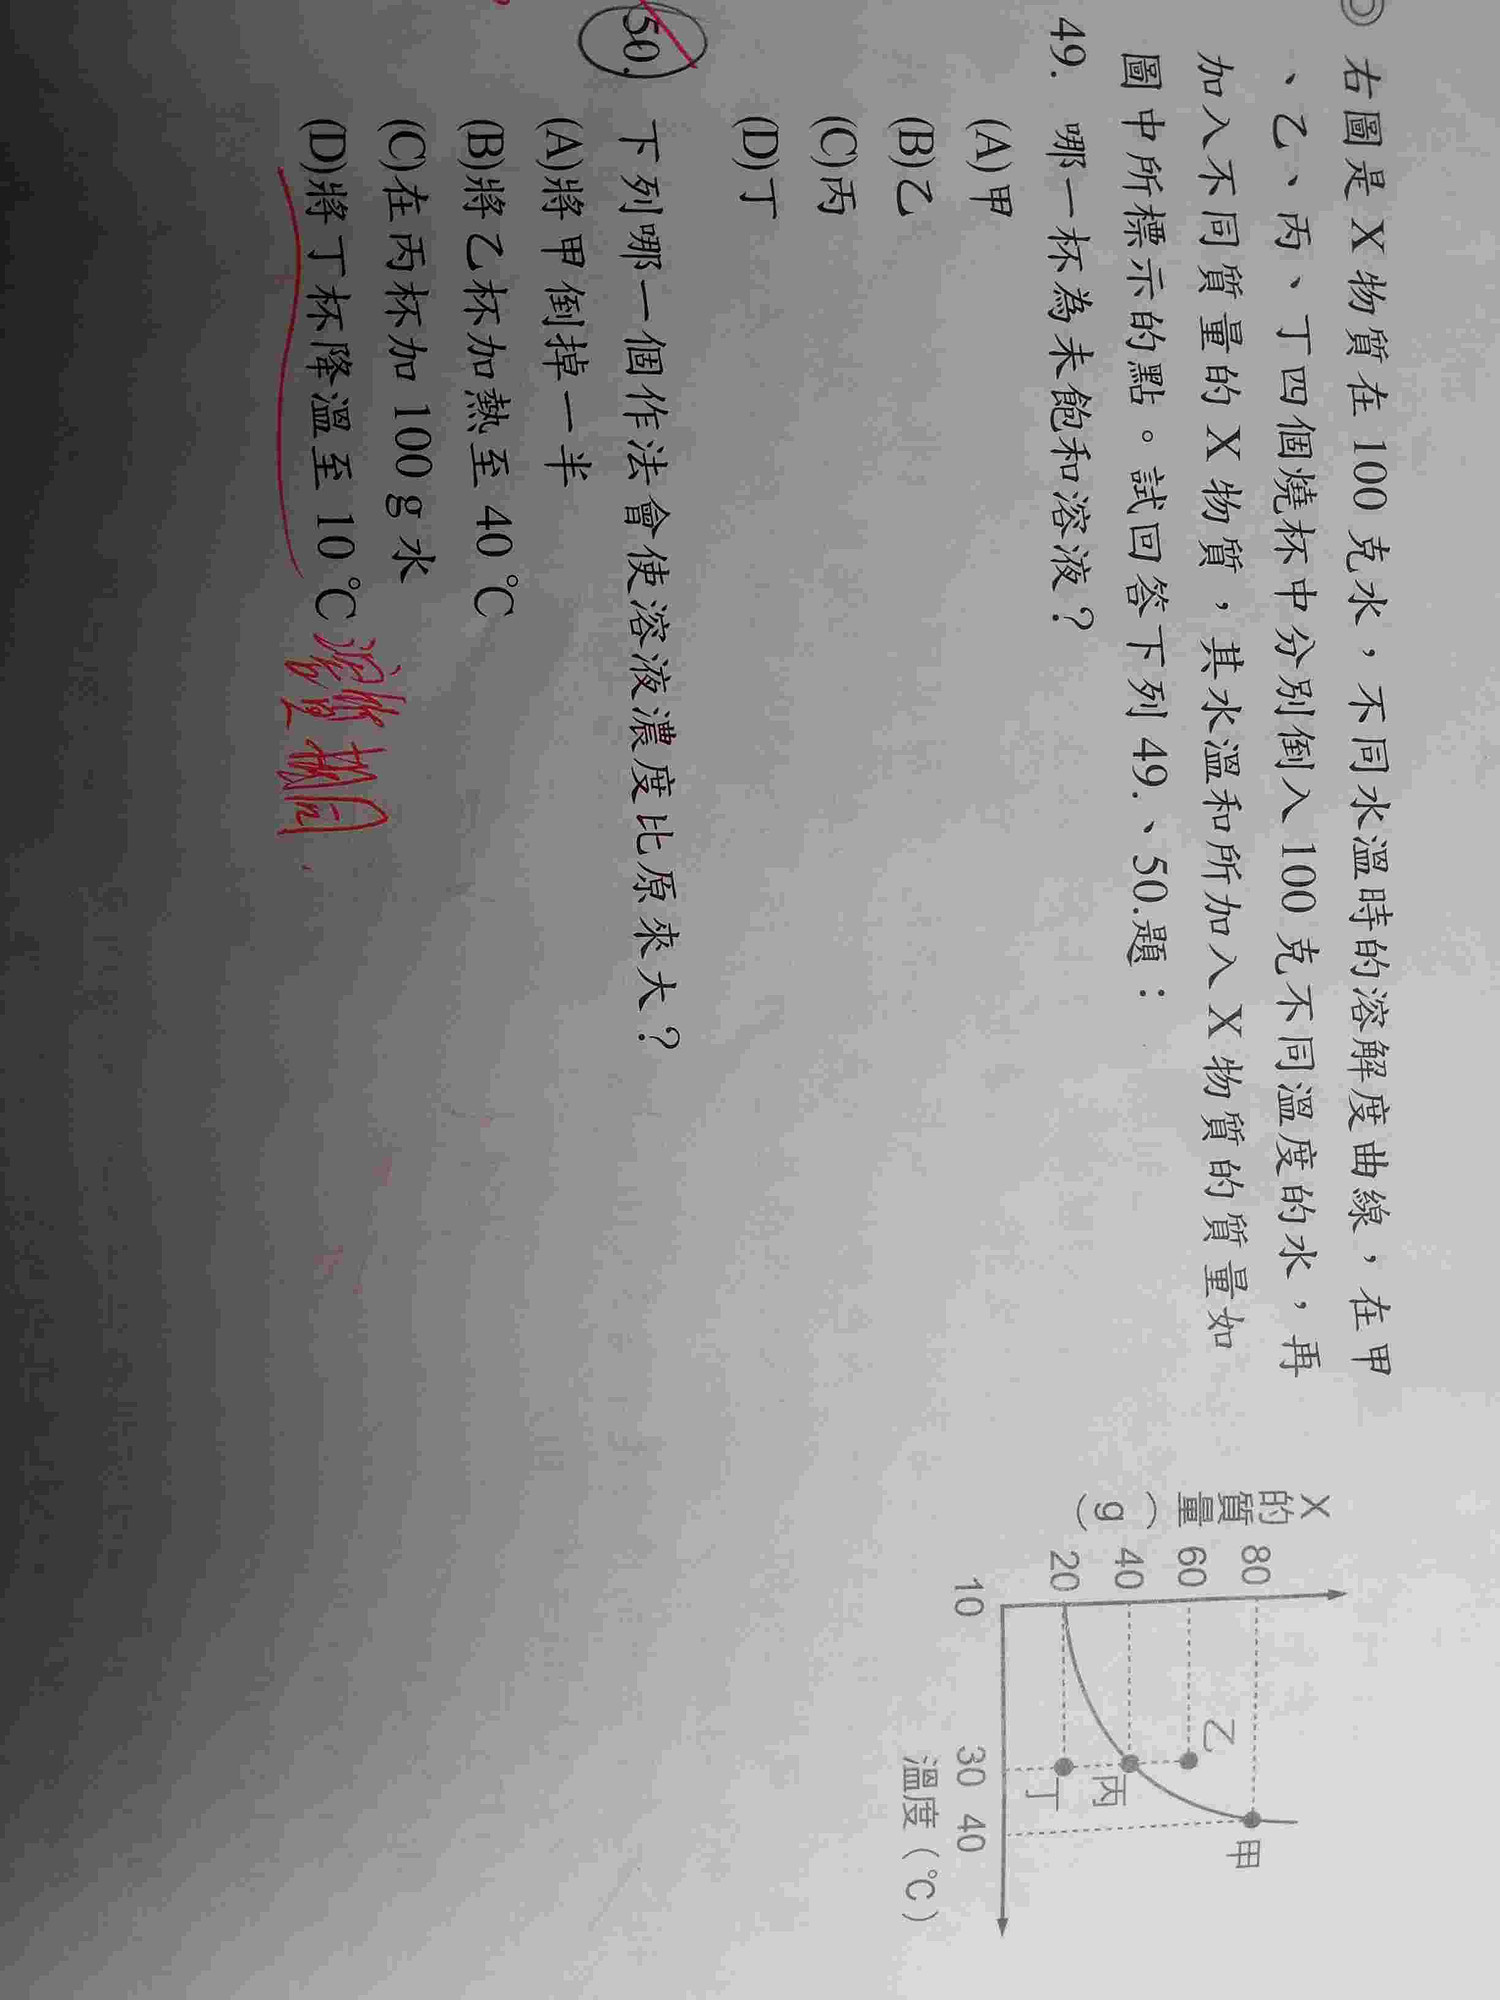 右圖是 X 物質在 100 克水，不同水溫時的溶解度曲線，在甲
、乙、丙、丁四個燒杯中分別倒入 100 克不同溫度的水，再
加入不同質量的 X 物質，其水溫和所加入 X 物質的質量如
圖中所標示的點。試回答下列 49.、50.題：
49. 哪一杯為未飽和溶液？
(A)甲
(B)乙
(C)丙
(D)丁
50. 下列哪一個作法會使溶液濃度比原來大？
(A)將甲倒掉一半
(B)將乙杯加熱至 40℃
(C)在丙杯加 100 g 水
(D)將丁杯降溫至 10℃
相同
X的質量(g)
80
60
40
20
10
30
40
溫度(℃)
乙
丙
丁
甲